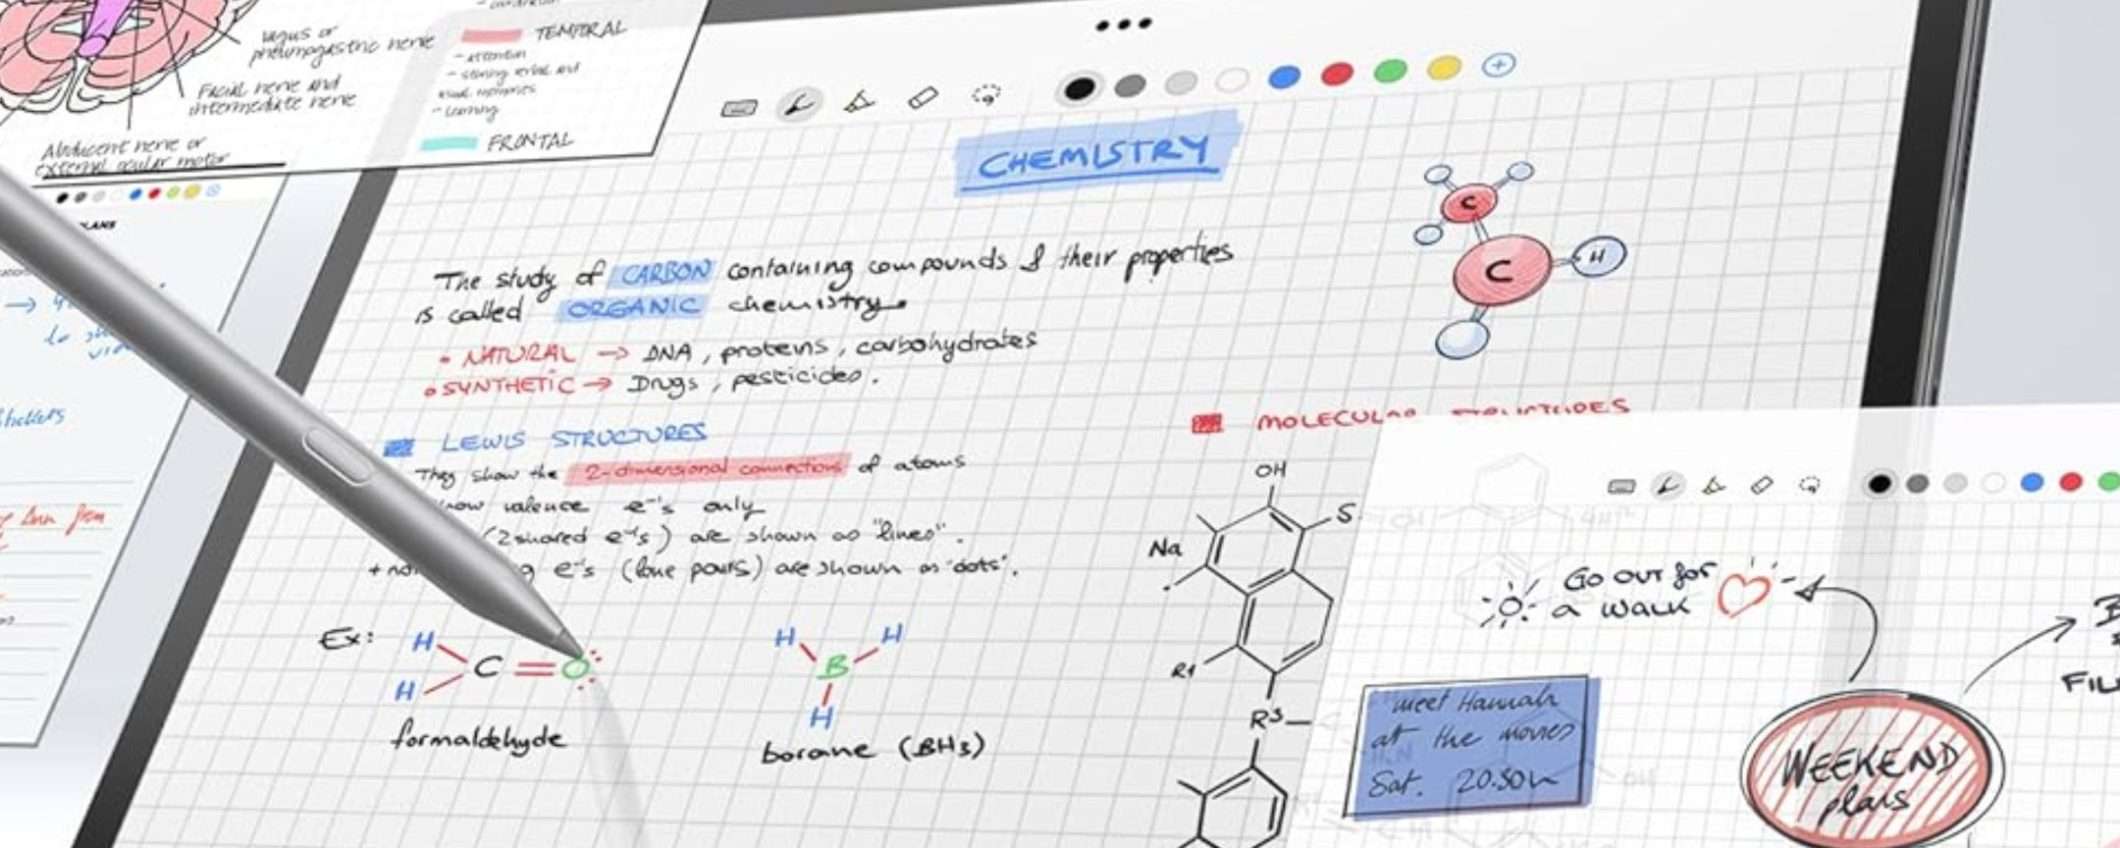 vagus or
pneumogastric nerve
Facial nerve and
intermediate nerve
Abducent nerve or
external ocular motor
TEMPORAL
- attention
- storing verbal and
visual memories
- learning
FRONTAL
PLANS
stickers
CHEMISTRY
The study of CARBON containing compounds & their properties
is called ORGANIC chemistry.
• NATURAL → DNA, proteins, carbohydrates
• SYNTHETIC → Drugs, pesticides.
LEWIS STRUCTURES
They show the 2-dimensional connections of atoms
valence e⁻'s only
(2 shared e⁻'s) are shown as "lines".
e⁻'s (lone pairs) are shown as "dots".
Ex:
H
H
C = O
formaldehyde
H H
B
H
borane (BH3)
C
C
H
MOLECULAR
OH
S
Na
R1
R3
Go out for
a walk
meet Hannah
at the movies
Sat. 20:30h
WEEKEND
plans